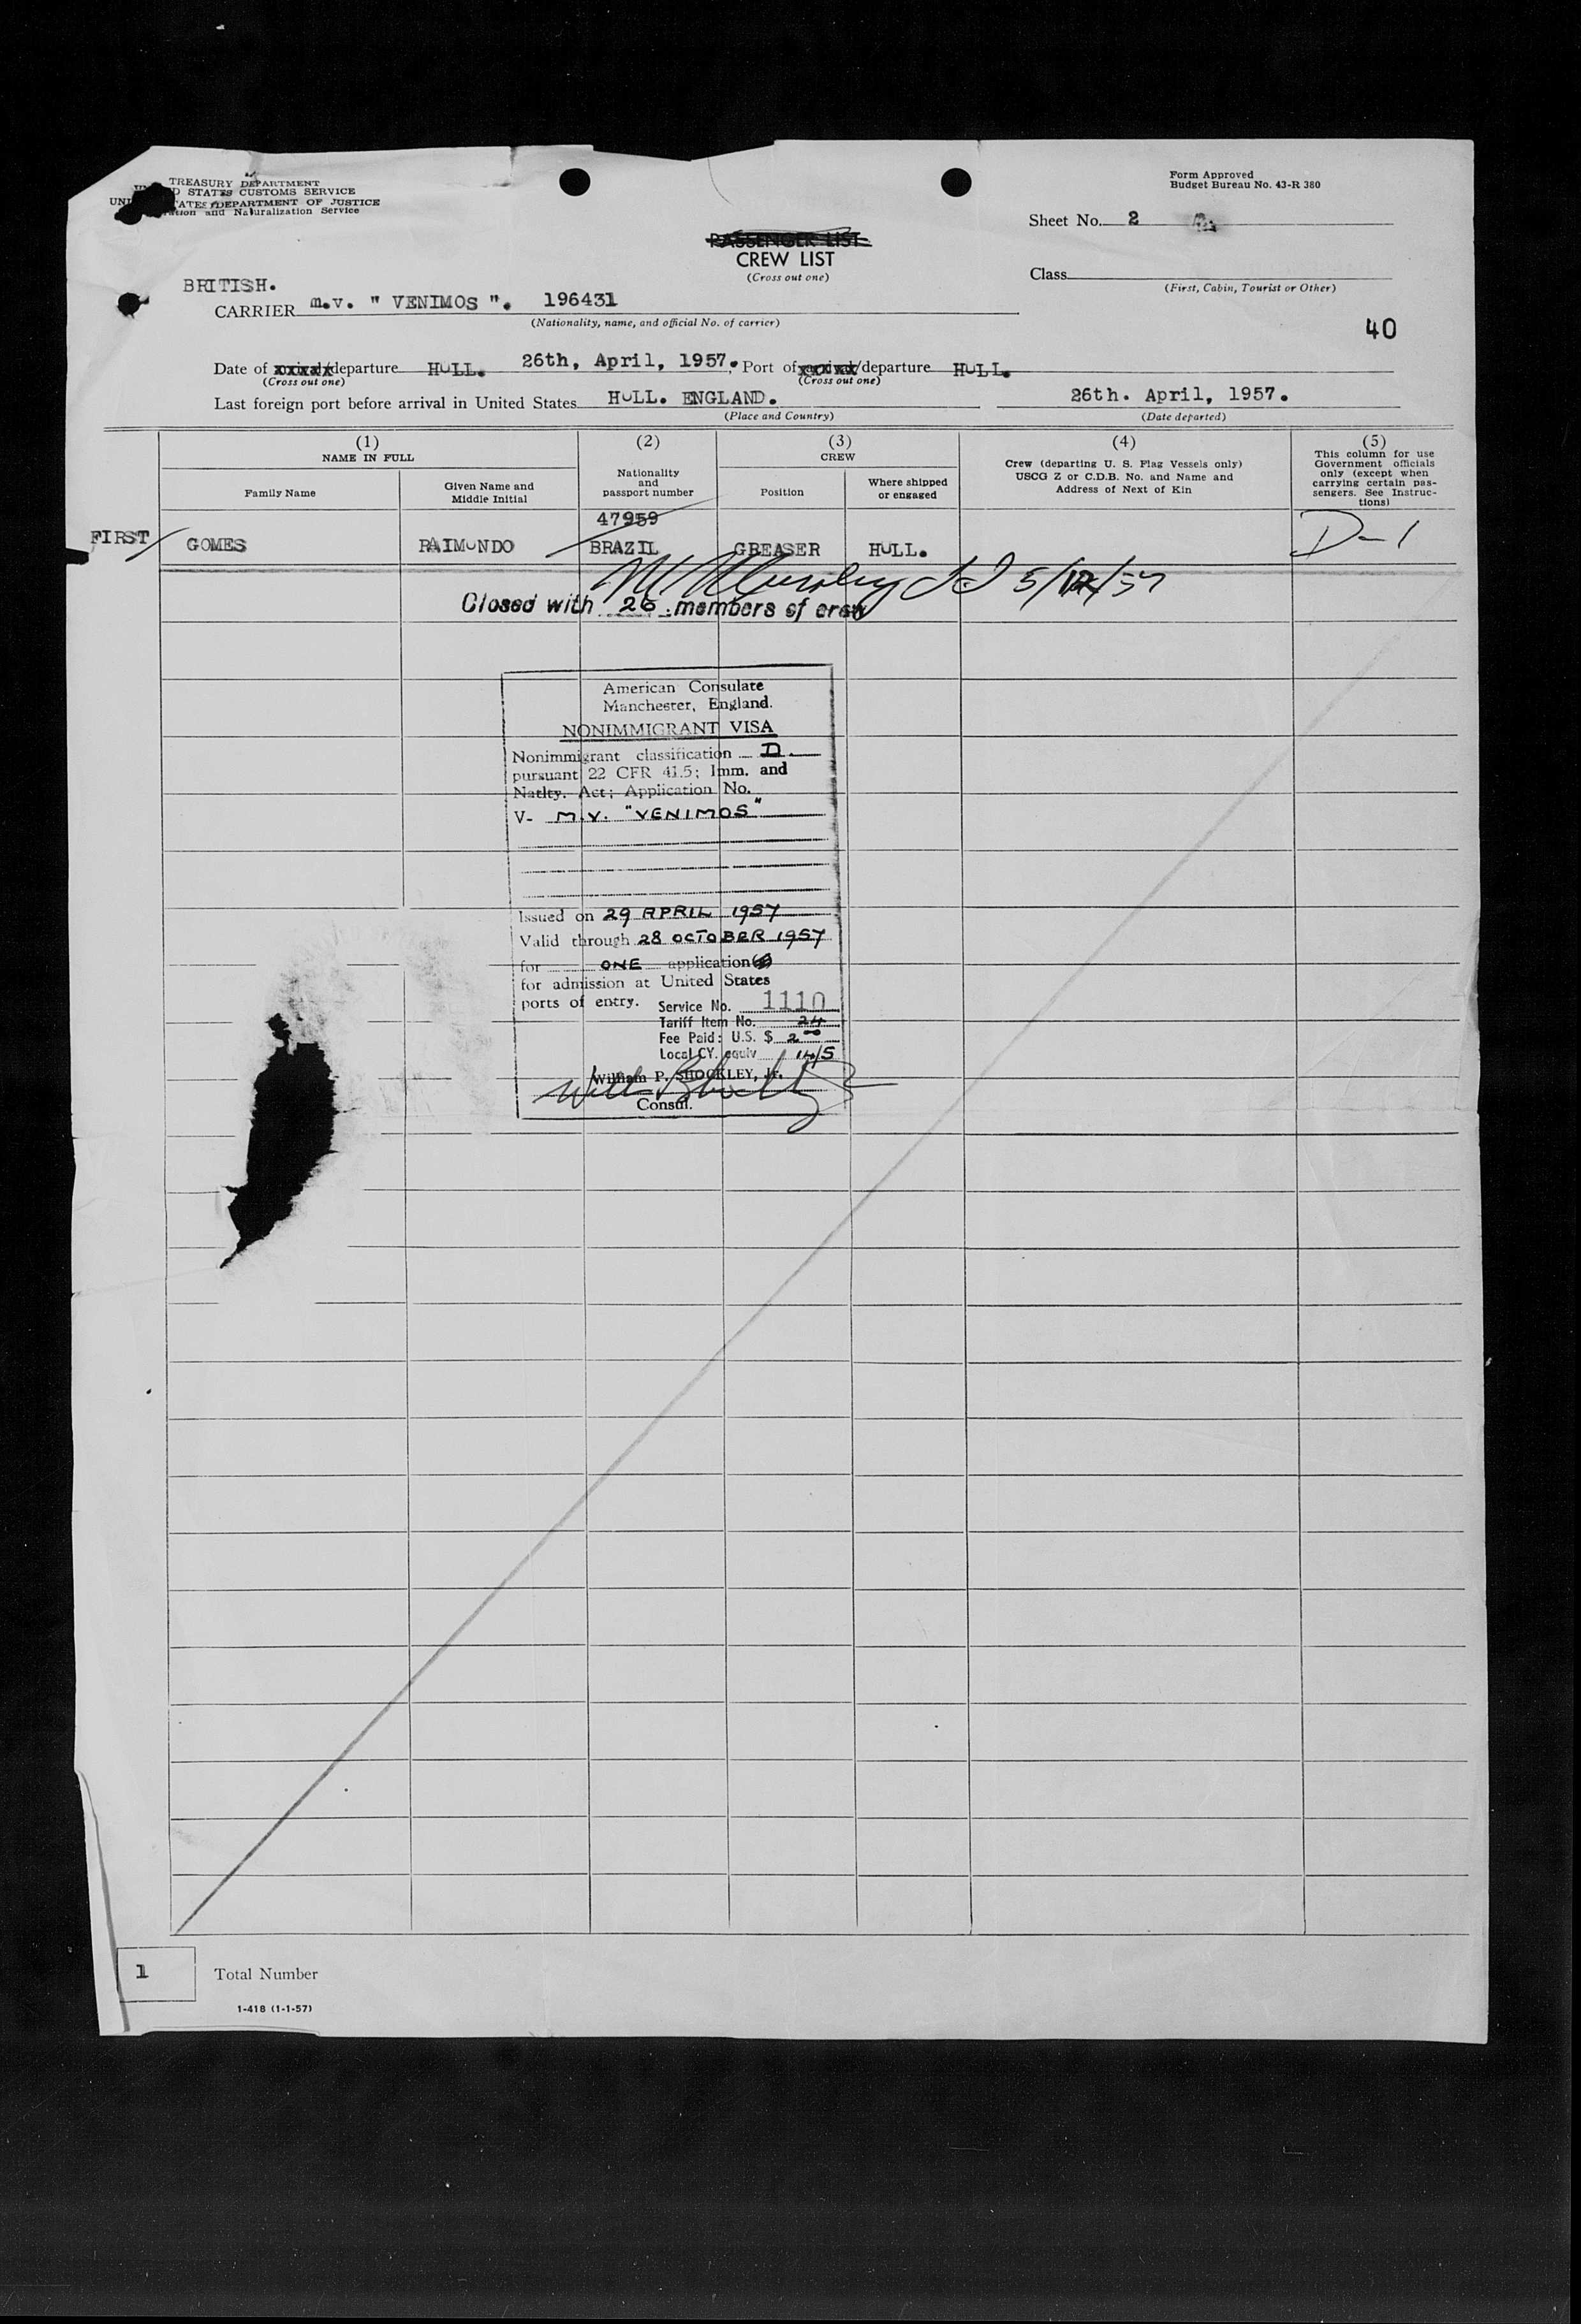 TREASURY DEPARTMENT
D STATES CUSTOMS SERVICE
UNI ATES DEPARTMENT OF JUSTICE
ation and Naturalization Service
Form Approved
Budget Bureau No. 43-R 380
Sheet No. 2
PASSENGER LIST
CREW LIST
(Cross out one)
Class
(First, Cabin, Tourist or Other)
BRITISH.
CARRIER m.v. " VENIMOS ". 196431
(Nationality, name, and official No. of carrier)
40
Date of departure HULL. 26th, April, 1957. Port of /departure HULL.
(Cross out one) (Cross out one)
Last foreign port before arrival in United States HULL. ENGLAND. 26th. April, 1957.
(Place and Country) (Date departed)
(1) (2) (3) (4) (5)
NAME IN FULL
Family Name
Given Name and
Middle Initial
Nationality
and
passport number
CREW
Position
Where shipped
or engaged
Crew (departing U. S. Flag Vessels only)
USCG Z or C.D.B. No. and Name and
Address of Next of Kin
This column for use
Government officials
only (except when
carrying certain pas-
sengers. See Instruc-
tions)
47959
FIRST GOMES RAIMUNDO BRAZIL GREASER HULL. D-1
5/12/57
Closed with 26 members of crew
American Consulate
Manchester, England.
NONIMMIGRANT VISA
Nonimmigrant classification D
pursuant 22 CFR 41.5; Imm. and
Natlty. Act; Application No.
V- M.V. "VENIMOS"
Issued on 29 APRIL 1957
Valid through 28 OCTOBER 1957
for ONE application
for admission at United States
ports of entry.
Service No. 1110
Tariff Item No. 24
Fee Paid: U.S. $ 2 00
Local CY. equiv 14/5
William P. SHOCKLEY, Jr.
Consul.
1 Total Number
1-418 (1-1-57)